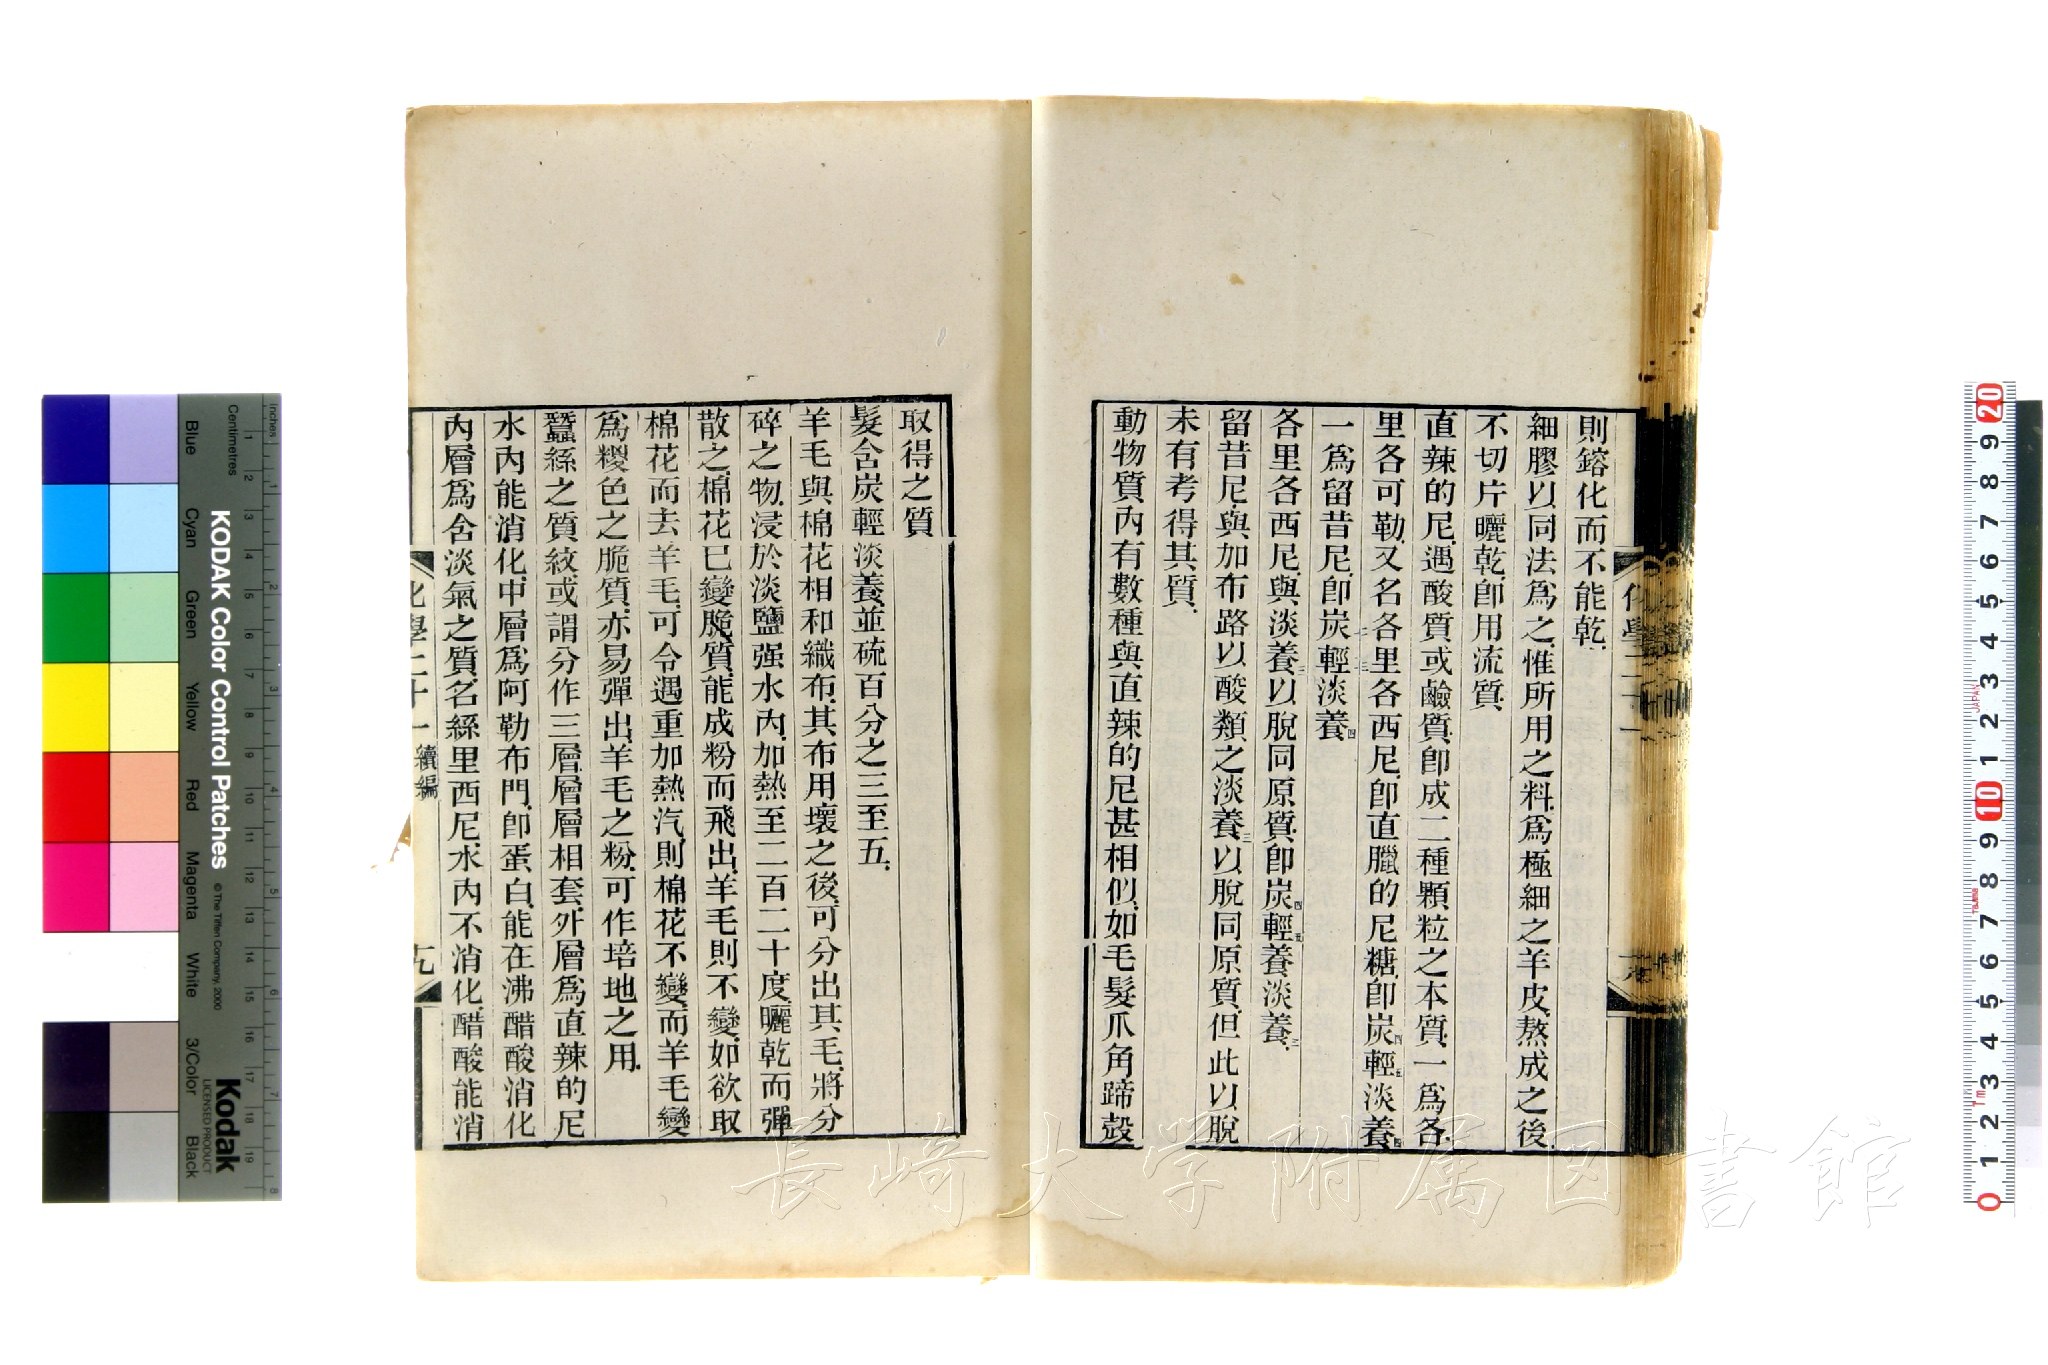 則鎔化而不能乾
細膠以同法爲之惟所用之料爲極細之羊皮熬成之後
不切片曬乾卽用流質
直辣的尼遇酸質或鹼質卽成二種顆粒之本質一爲各
里各可勒又名各里各西尼卽直臘的尼糖卽炭四輕五淡養四
一爲留昔尼卽炭輕淡養四
各里各西尼與淡養三以脫同原質卽炭四輕五養淡養三
留昔尼與加布路以酸類之淡養三以脫同原質但此以脫
未有考得其質
動物質內有數種與直辣的尼甚相似如毛髮爪角蹄殼
取得之質
髮含炭輕淡養並硫百分之三至五
羊毛與棉花相和織布其布用壞之後可分出其毛將分
碎之物浸於淡鹽强水內加熱至二百二十度曬乾而彈
散之棉花已變脆質能成粉而飛出羊毛則不變如欲取
棉花而去羊毛可令遇重加熱汽則棉花不變而羊毛變
爲糉色之脆質亦易彈出羊毛之粉可作培地之用
蠶絲之質紋或謂分作三層層層相套外層爲直辣的尼
水內能消化中層爲阿勒布門卽蛋白能在沸醋酸消化
內層爲含淡氣之質名絲里西尼水內不消化醋酸能消
化學二十一 續編
十九
長崎大学附属図書館
KODAK Color Control Patches
© The Tiffen Company, 2000
Kodak
LICENSED PRODUCT
Inches
Centimetres
Blue Cyan Green Yellow Red Magenta White 3/Color Black
1 2 3 4 5 6 7 8
1 2 3 4 5 6 7 8 9 10 11 12 13 14 15 16 17 18 19
20 9 8 7 6 5 4 3 2 1 10 9 8 7 6 5 4 3 2 1 0
JAPAN